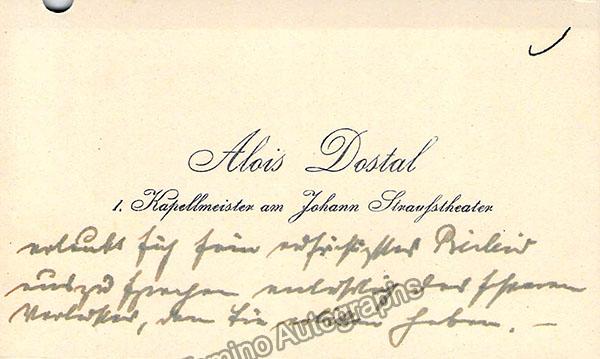 Alois Dostal
1. Kapellmeister am Johann Straußstheater
erlaubt sich sein aufrichtigstes Beileid
auszusprechen anläßlich des schweren
Verlustes, den Sie erlitten haben. —
Tamino Autographs